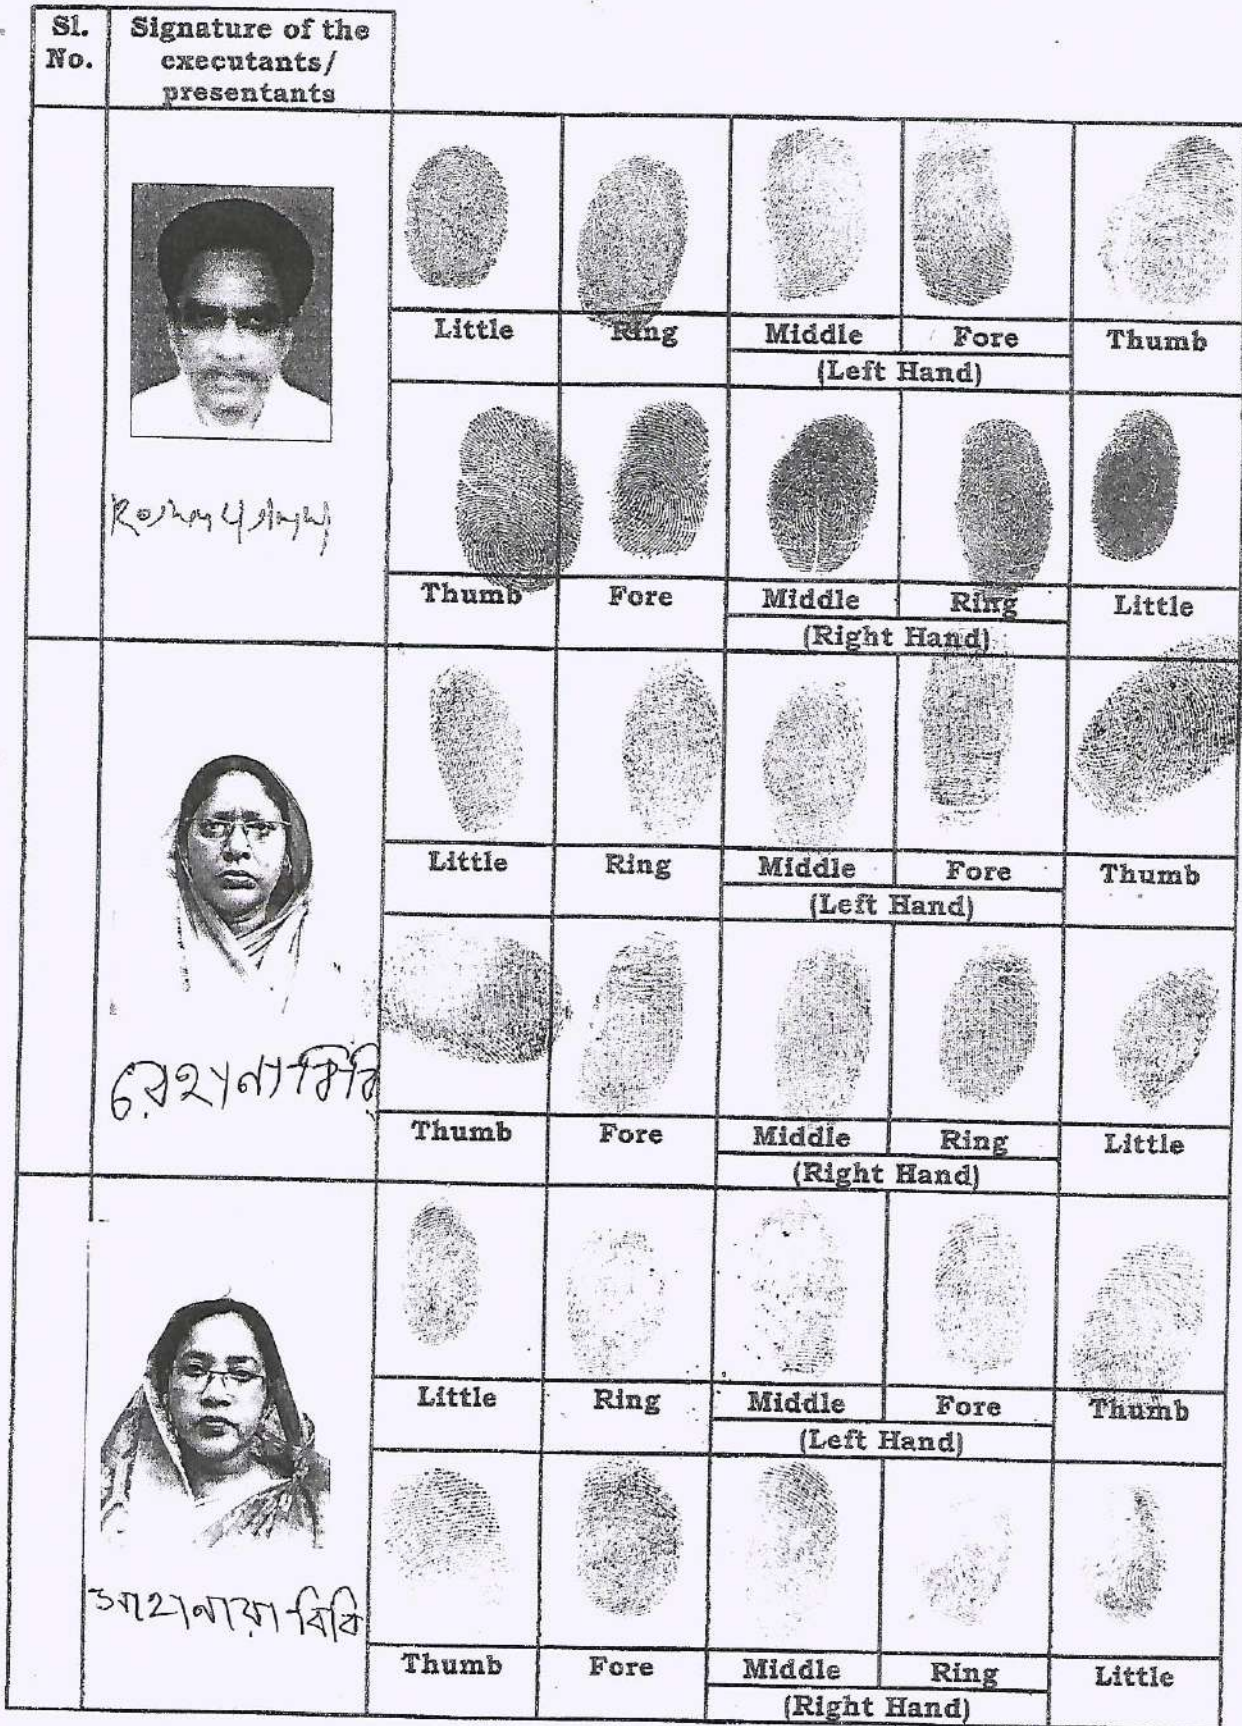 Sl. No.
Signature of the executants/ presentants
Little Ring Middle Fore Thumb
(Left Hand)
Thumb Fore Middle Ring Little
(Right Hand)
Little Ring Middle Fore Thumb
(Left Hand)
রেহানা বিবি
Thumb Fore Middle Ring Little
(Right Hand)
Little Ring Middle Fore Thumb
(Left Hand)
বিবি
Thumb Fore Middle Ring Little
(Right Hand)